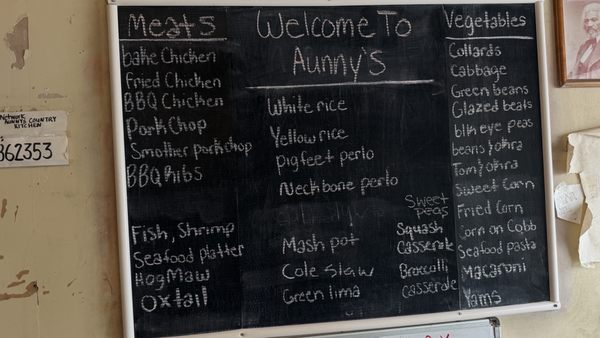 Meats
bake Chicken
Fried Chicken
BBQ Chicken
Pork Chop
Smother porkchop
BBQ Ribs
Fish, Shrimp
Seafood platter
Hog Maw
Oxtail
Welcome To
Aunny's
White rice
Yellow rice
pigfeet perlo
Neckbone perlo
Mash pot
Cole slaw
Green lima
Sweet
peas
Squash
Casserole
Broccolli
Casserole
Vegetables
Collards
Cabbage
Green beans
Glazed beats
blk eye peas
beans & okra
Tom & okra
Sweet Corn
Fried Corn
Corn on Cobb
Seafood pasta
Macaroni
Yams
Network
AUNNYS COUNTRY
KITCHEN
862353